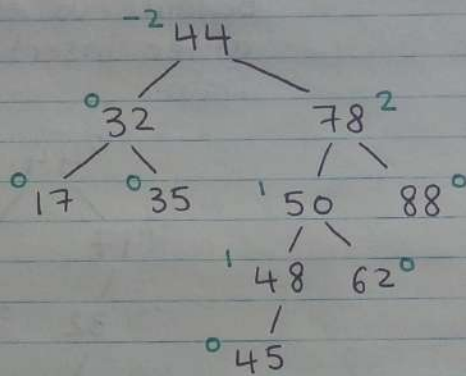 -2 44
0 32 78 2
0 17 0 35 1 50 88 0
1 48 62 0
0 45